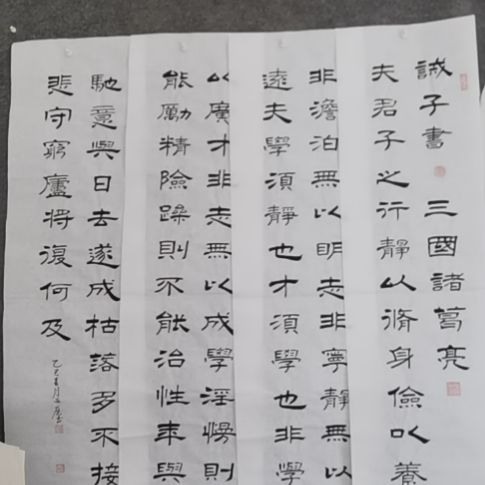 誡子書 三國諸葛亮
夫君子之行靜以脩身儉以養
非澹泊無以明志非寧靜無以
遠夫學須靜也才須學也非學
以廣才非志無以成學淫慢則
能勵精險躁則不能治性年與
馳意與日去遂成枯落多不接
悲守窮廬將復何及